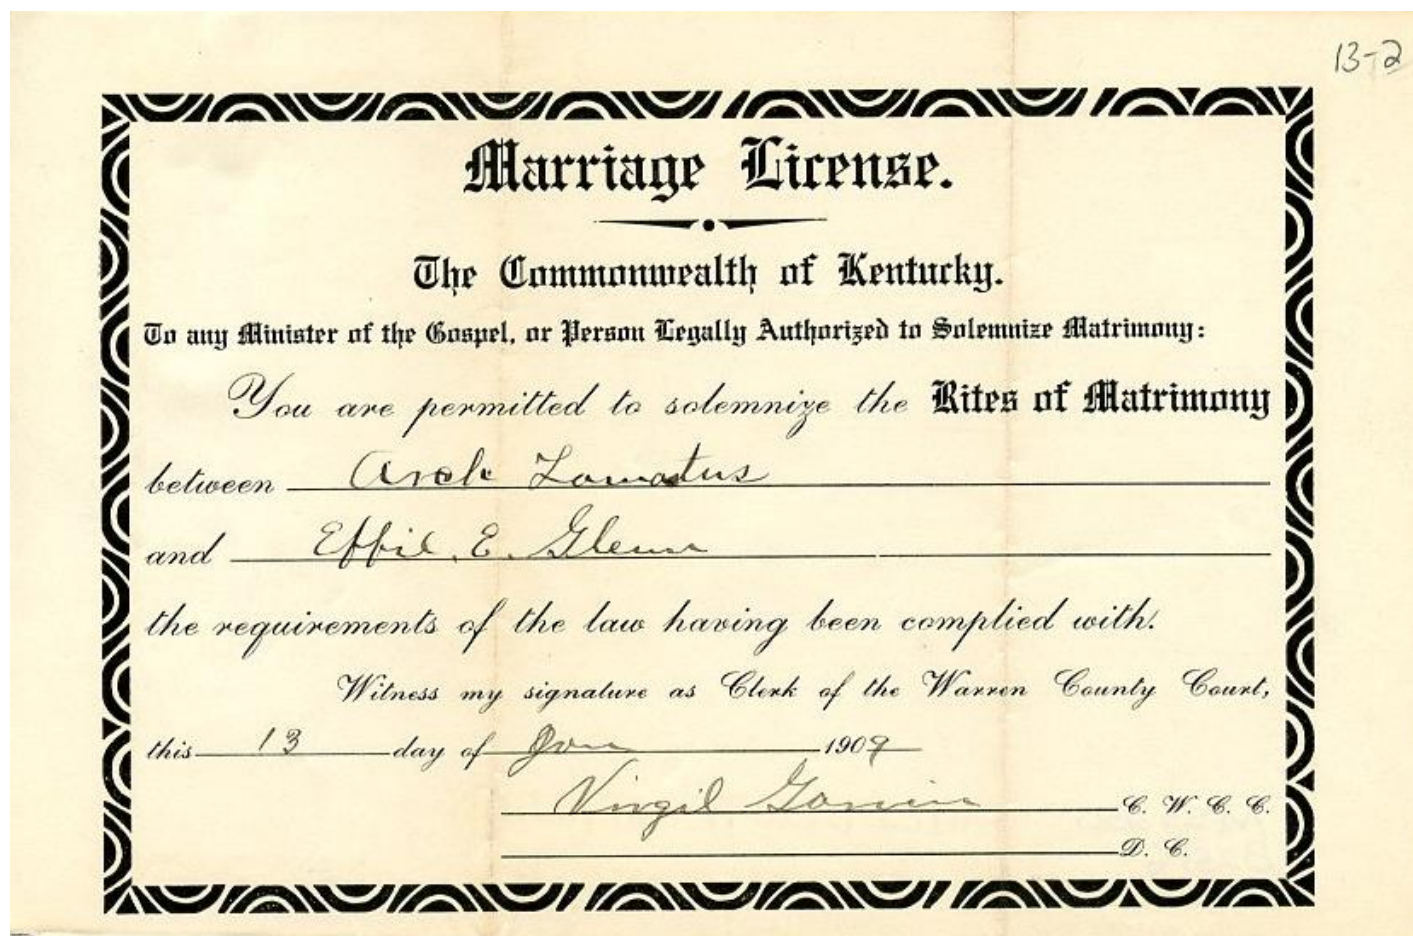 13-2
Marriage License.
The Commonwealth of Kentucky.
To any Minister of the Gospel, or Person Legally Authorized to Solemnize Matrimony:
You are permitted to solemnize the Rites of Matrimony
between Arch Lomatus
and Effie. E. Glenn
the requirements of the law having been complied with.
Witness my signature as Clerk of the Warren County Court,
this 13 day of Jan 1909
Virgil Garvin C. W. C. C.
D. C.